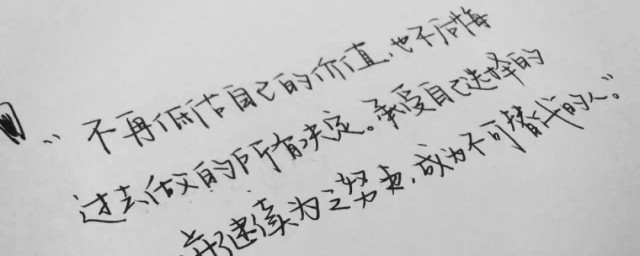 “不再低估自己的价值,也不后悔
过去做的所有决定。承受自己选择的
并继续为之努力,成为不可替代的人”。